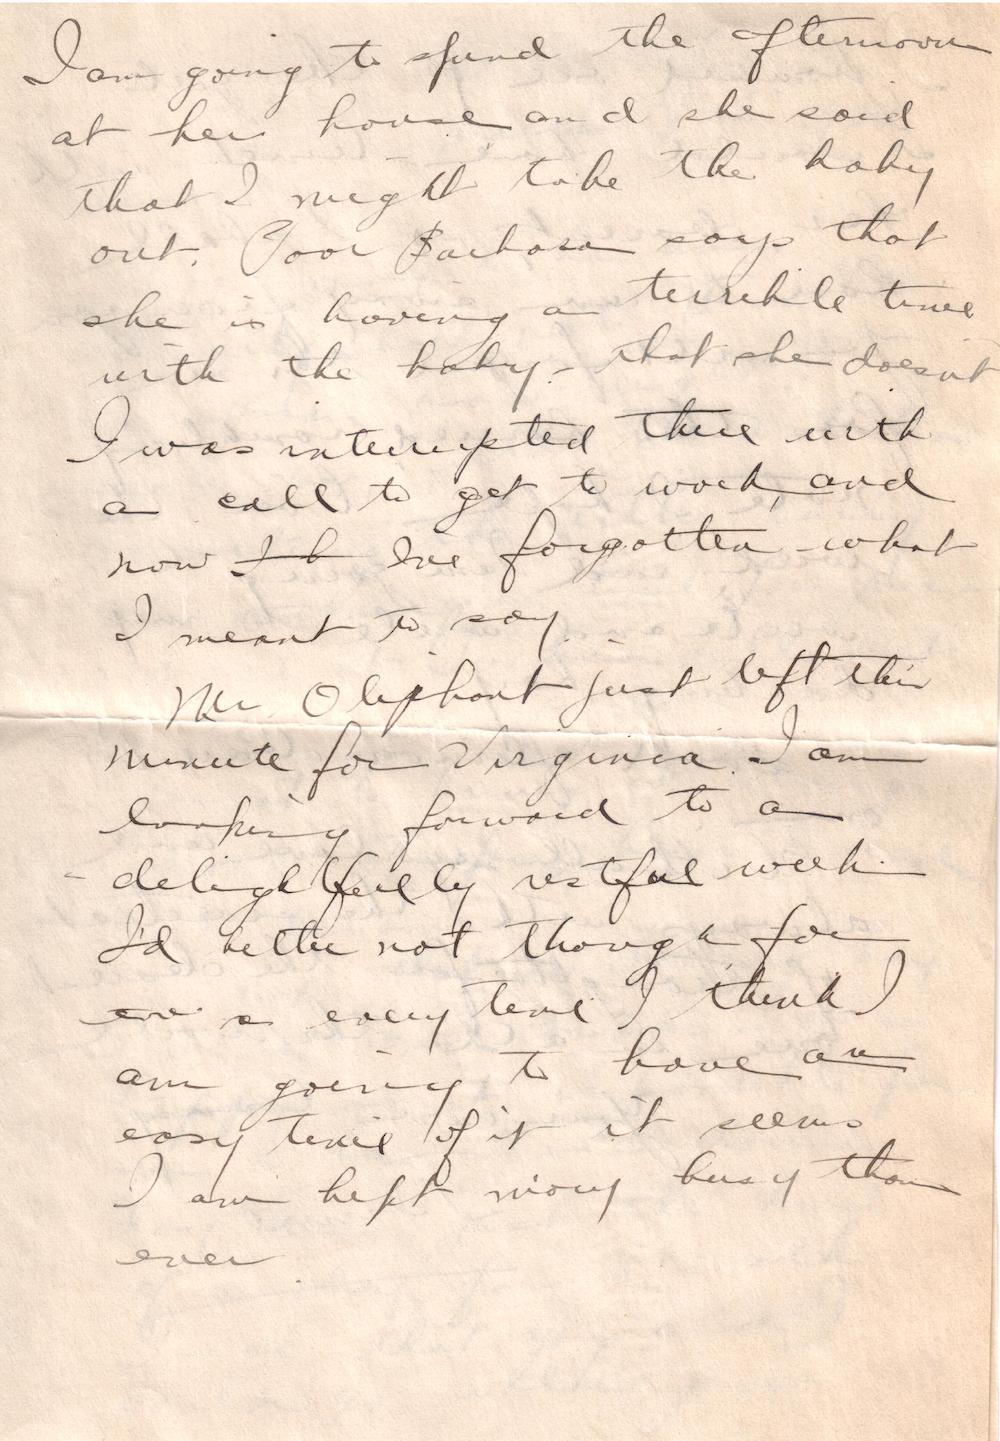 I am going to spend the afternoon
at her house and she said
that I might take the baby
out. Poor Barbara says that
she is having a terrible time
with the baby. - that she doesn't
I was interrupted there with
a call to get to work, and
now I've forgotten what
I meant to say.
Mr. Oliphant just left this
minute for Virginia. I am
looking forward to a
delightfully restful week.
I'd better not though for
every time I think I
am going to have an
easy time of it it seems
I am kept busy than
ever.